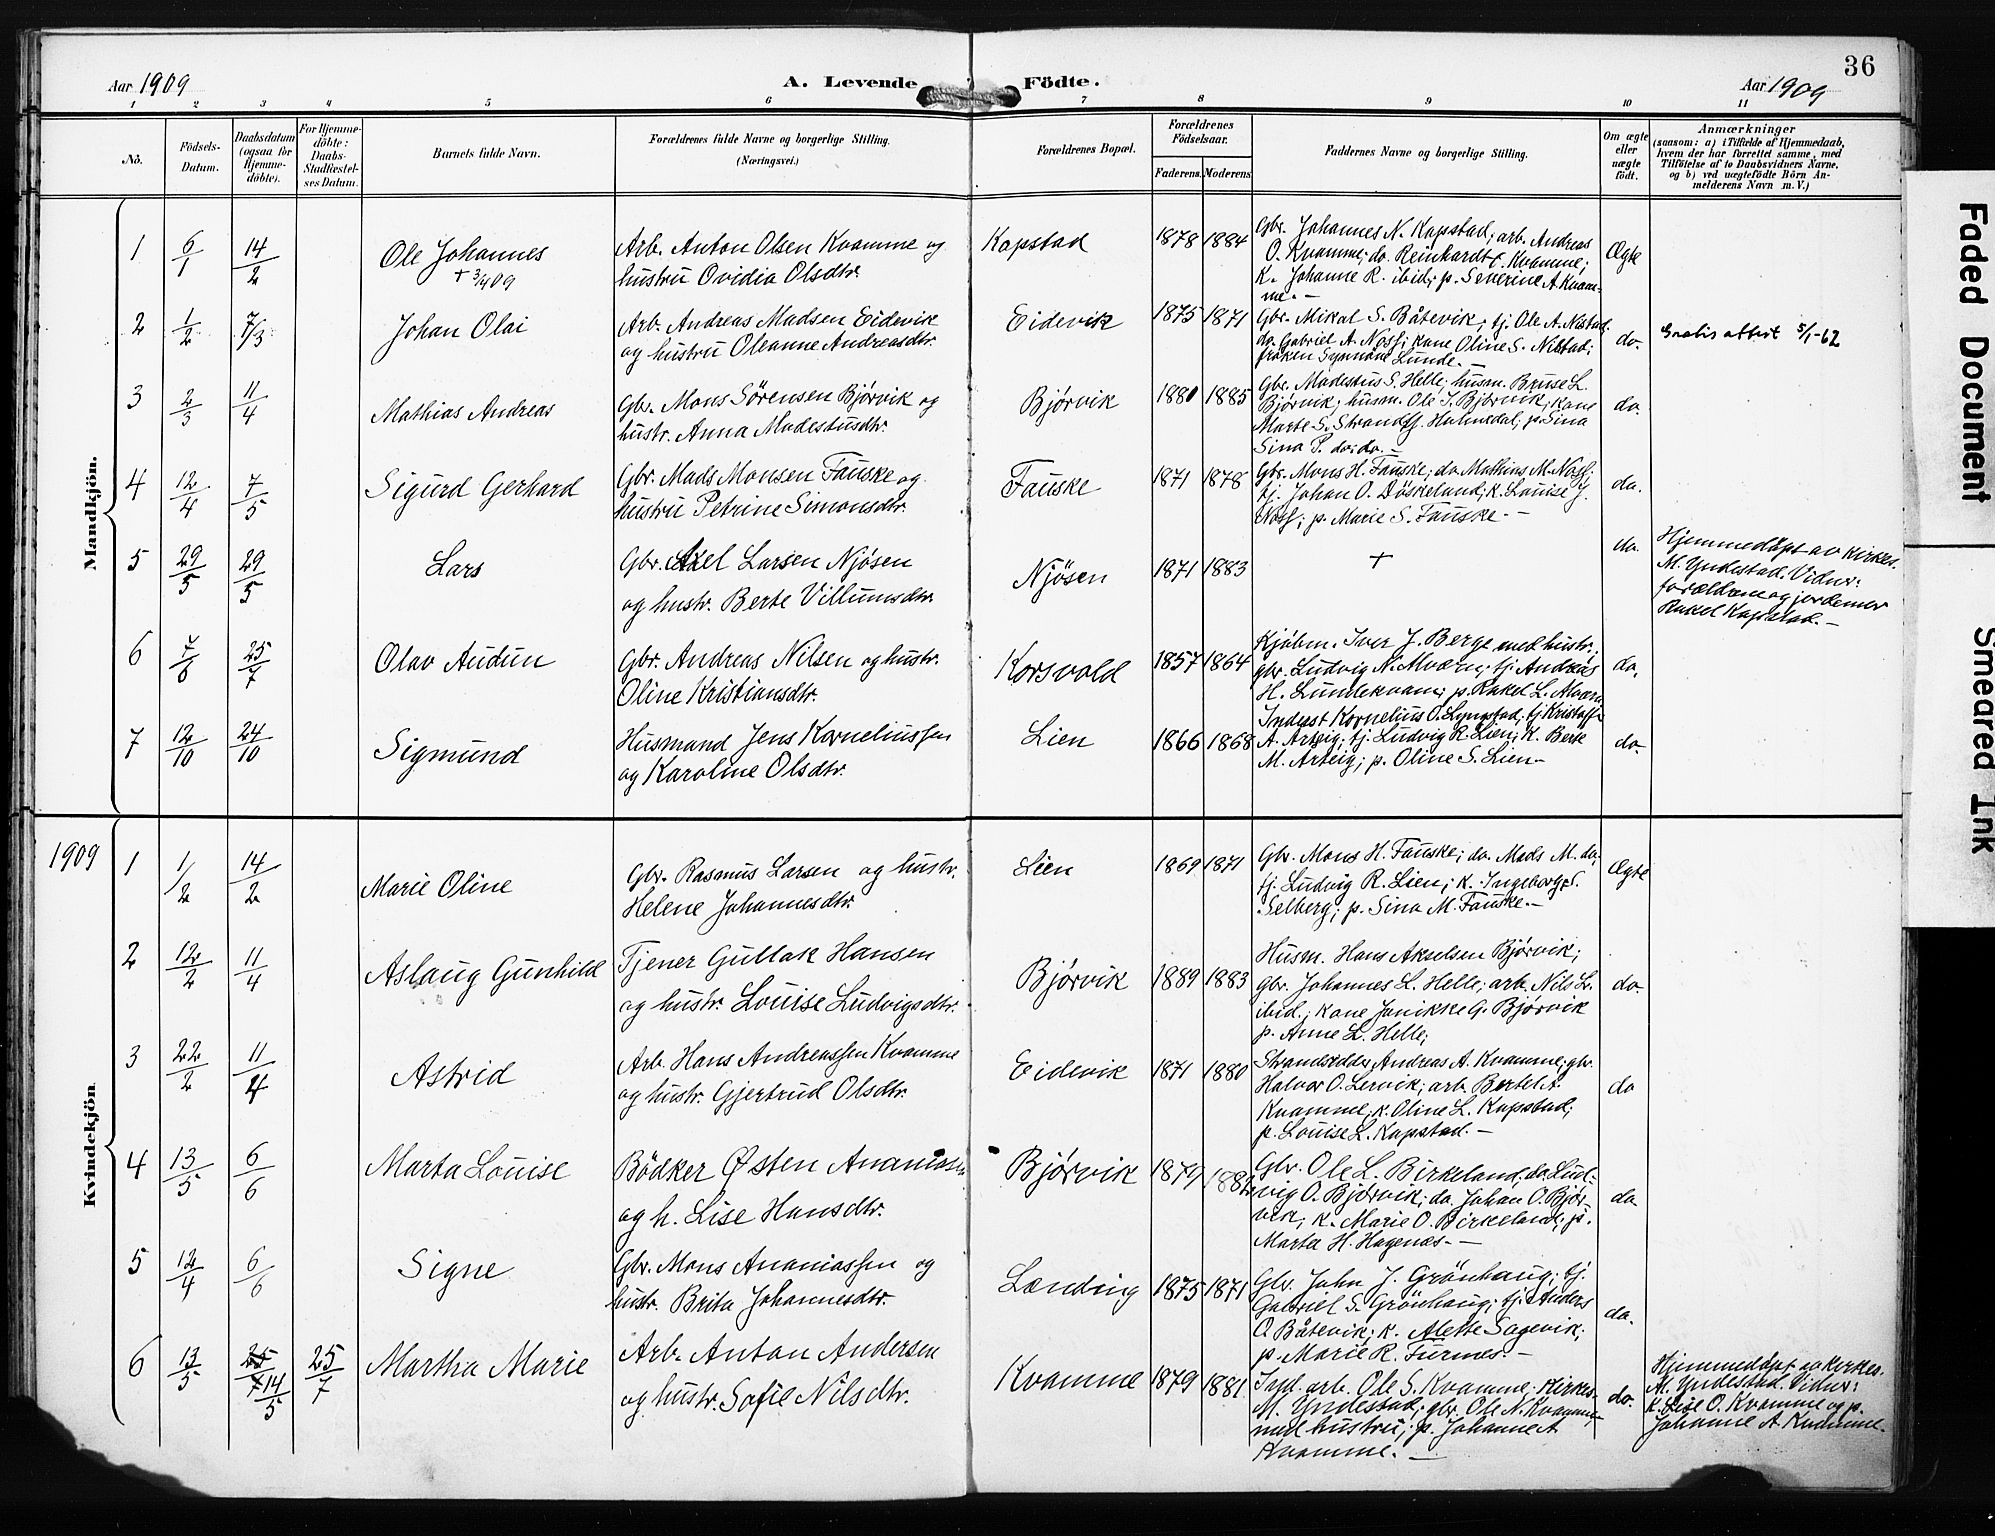 36
Aar 1909
A. Levende Födte.
Aar 1909
1 2 3 4 5 6 7 8 9 10 11
No.
Födsels-Datum.
Daabsdatum (ogsaa for Hjemme-döbte).
For Hjemme-döbte: Daabs-Stadfæstel-ses Datum.
Barnets fulde Navn.
Forældrenes fulde Navne og borgerlige Stilling. (Næringsvei.)
Forældrenes Bopæl.
Forældrenes Födselsaar.
Faderens. Moderens
Faddernes Navne og borgerlige Stilling.
Om ægte eller uægte födt.
Anmærkninger
(saasom: a) i Tilfælde af Hjemmedaab, hvem der har forrettet samme, med Tilföielse af to Daabsvidners Navne. og b) ved uægtefödte Börn An-melderens Navn m. V.)
Mandkjön.
1 6/1 14/2 Ole Johannes + 3/4 09
Arb. Anton Olsen Kvamme og
hustru Ovidia Olsdtr.
Kapstad 1878 1884
Gbr. Johannes N. Kapstad; arb. Andreas
O. Kvamme; do. Reinhardt C. Kvamme;
k. Johanne R. ibid; p. Severine A. Kvam-
me. -
Ægte
2 1/2 7/3 Johan Olai
Arb. Andreas Madsen Eidevik
og hustru Oleanne Andreasdtr.
Eidevik 1875 1871
Gbr. Mikal S. Båtevik; tj. Ole A. Nistad.
do. Gabriel A. Noss; kone Oline S. Nistad;
frøken Synnøve Lunde.
do. Gratis attest 5/1-62
3 2/3 11/4 Mathias Andreas
Gbr. Mons Sörensen Bjørvik og
hustr. Anna Modestusdtr.
Bjørvik 1880 1885
Gbr. Modestus S. Helle; husm. Bruse L.
Bjørvik; husm. Ole J. Bjørvik; kone
Marte S. Strand, Holmedal; p. Sina
Sina P. do: do. -
do.
4 12/4 7/5 Sigurd Gerhard
Gbr. Mads Monsen Fauske og
hustru Petrine Simonsdtr.
Fauske 1871 1878
Gbr. Mons H. Fauske; do. Mathias M. Noss;
tj. Johan O. Döskeland; k. Louise J.
Noss; p. Marie S. Fauske. -
do.
5 29/5 29/5 Lars
Gbr. Axel Larsen Njøsen
og hustr. Berte Villumsdtr.
Njøsen 1871 1883
+
do.
Hjemmedöpt av kirkes.
M. Yndestad. Vidner:
forældrene og jordemor
Rakel Kapstad. -
6 7/6 25/7 Olav Audun
Gbr. Andreas Nilsen og hustr.
Oline Kristiansdtr.
Korsvold 1857 1864
Kjøbm. Iver J. Berge med hustr.;
gbr. Ludvig N. Alværn; tj. Andreas
H. Lundekvam; p. Rakel L. Alværn
do.
7 12/10 24/10 Sigmund
Husmand Jens Korneliussen
og Karoline Olsdtr.
Lien 1866 1868
Inderst Kornelius O. Lyngstad; tj. Kristoff
A. Arteig; tj. Ludvig R. Lien; k. Berte
M. Arteig; p. Oline S. Lien -
do.
1909
Kvindekjön.
1 1/2 14/2 Marie Oline
Gbr. Rasmus Larsen og hustr.
Helene Johannesdtr.
Lien 1869 1871
Gbr. Mons H. Fauske; do. Mads M. do;
tj. Ludvig R. Lien; k. Ingeborg S.
Selberg; p. Sina M. Fauske. -
Ægte
2 12/2 11/4 Aslaug Gunhild
Tjener Gullak Hansen
og hustr. Louise Ludvigsdtr.
Bjørvik 1889 1883
Husm. Hans Akselsen Bjørvik;
gbr. Johannes L. Helle; arb. Nils L.
ibid.; kone Janikke G. Bjørvik
p. Anne L. Helle;
do.
3 22/2 11/4 Astrid
Arb. Hans Andreassen Kvamme
og hustr. Gjertrud Olsdtr.
Eidevik 1871 1880
Strandsidder Andreas A. Kvamme; gbr.
Halvor O. Lervik; arb. Bertel A.
Kvamme; k. Oline L. Kapstad;
p. Louise L. Kapstad. -
do
4 13/5 6/6 Marta Louise
Bödker Østen Ananiasen
og h. Lise Hansdtr.
Bjørvik 1879
Gbr. Ole L. Birkeland; do. Lud-
vig O. Bjørvik; do. Johan O. Bjør-
vik; k. Marie O. Birkeland; p.
Marta H. Hagenæs. -
do.
5 12/4 6/6 Signe
Gbr. Mons Ananiassen og
hustr. Brita Johannesdtr.
Lending 1875 1871
Gbr. John J. Grönhaug; tj.
Gabriel S. Grönhaug; tj. Anders
O. Båtevik; k. Alette Sagevik;
p. Marie R. Furnes. -
do.
6 13/5 25/7 14/5 25/7 Martha Marie
Arb. Anton Andersen
og hustr. Sofie Nilsdtr.
Kvamme 1879 1881
Insd. arb. Ole S. Kvamme; kirkes.
M. Yndestad; gbr. Ole N. Kvamme
med hustru; p. Johanne A
Kvamme. -
do.
Hjemmedöpt av kirkes.
M. Yndestad. Vidner:
k. Lise O. Kvamme og p.
Johanne A Kvamme.
Faded Document
Smeared Ink